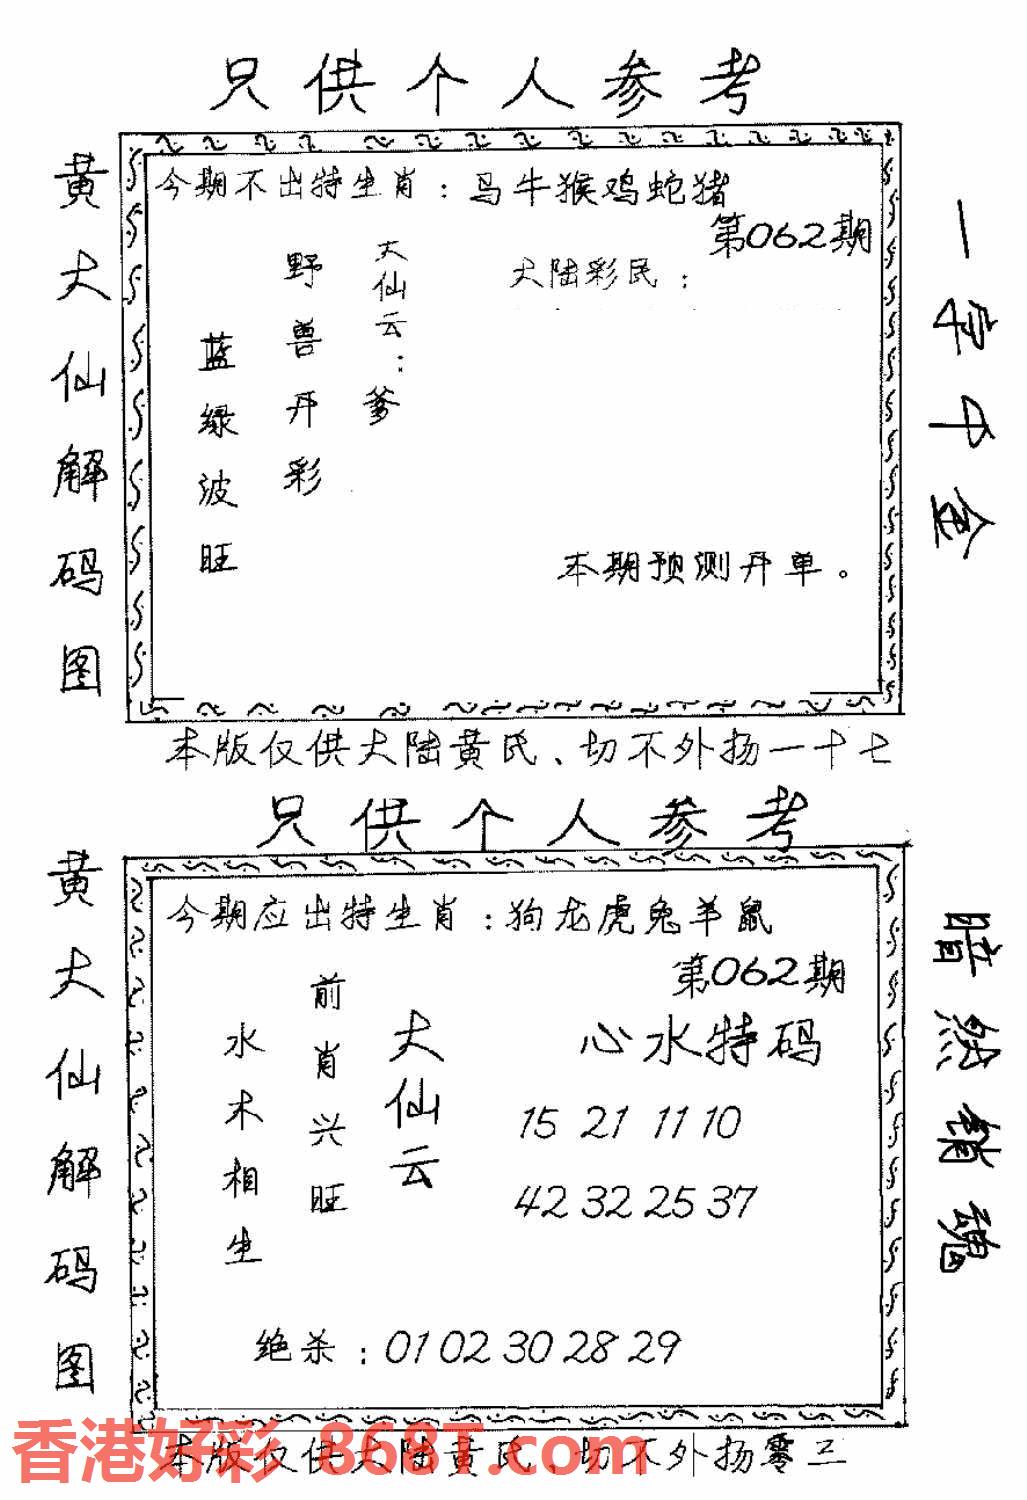 只供个人参考
黄大仙解码图
今期不出特生肖：马牛猴鸡蛇猪
第062期
大陆彩民：
大仙云：爹
野兽开彩
蓝绿波旺
本期预测开单。
一字千金
本版仅供大陆黄氏、切不外扬一十七
只供个人参考
黄大仙解码图
今期应出特生肖：狗龙虎兔羊鼠
第062期
心水特码
15 21 11 10
42 32 25 37
大仙云
前肖兴旺
水木相生
绝杀：01 02 30 28 29
暗然销魂
香港好彩 868T.com
本版仅供大陆黄氏、切不外扬零三